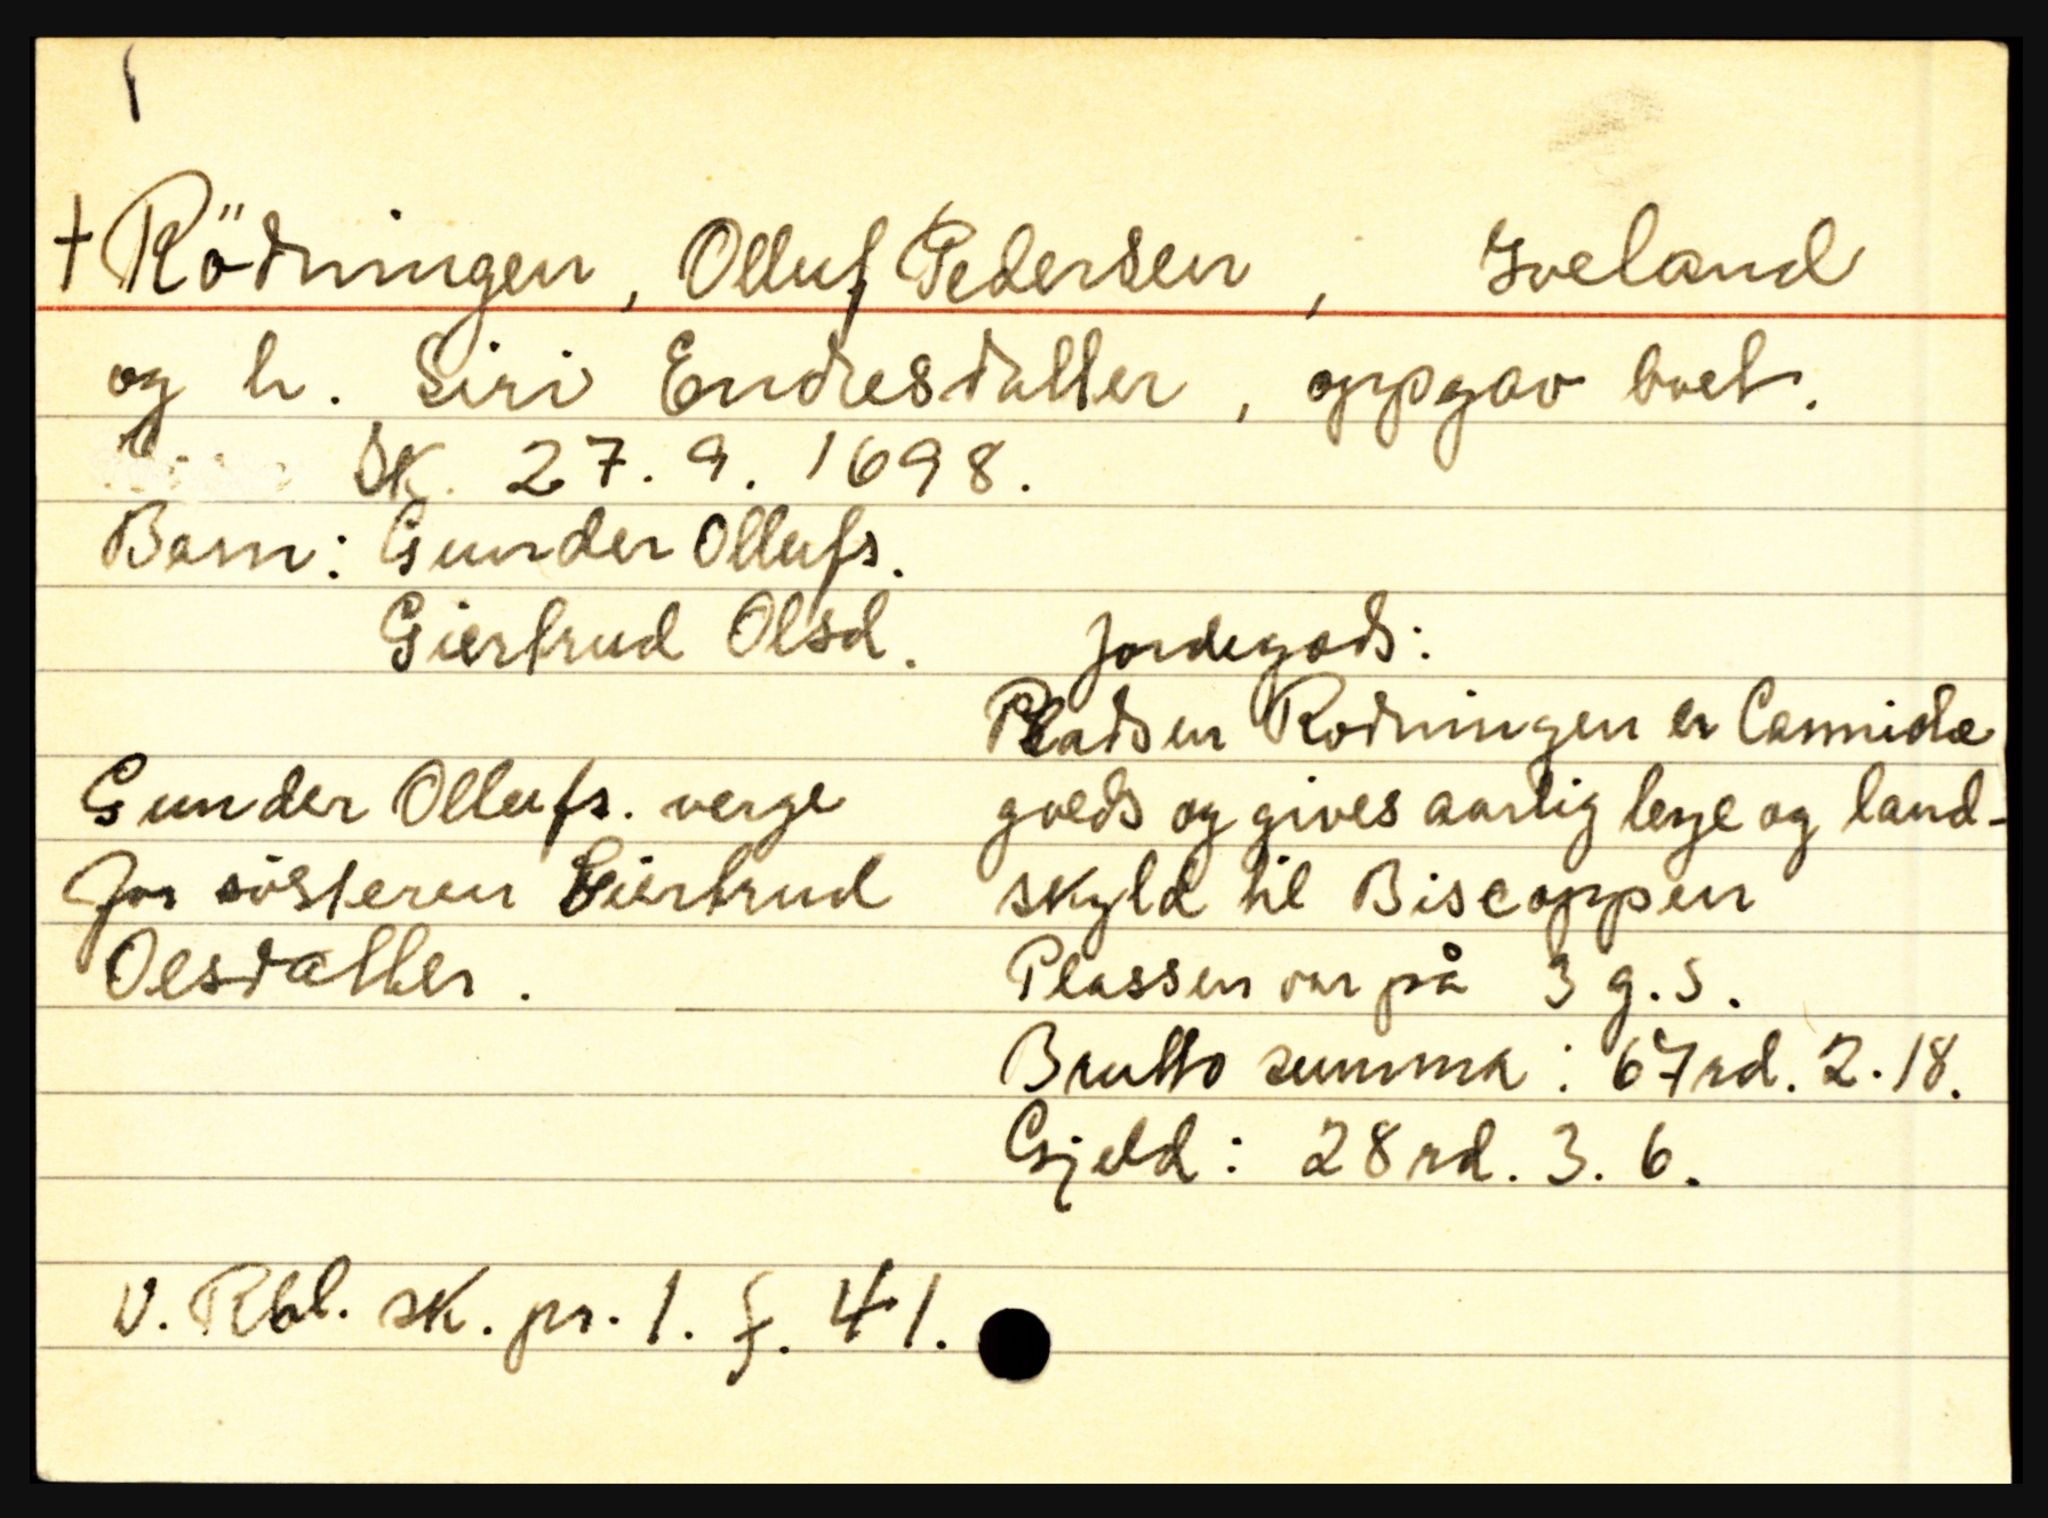 † Rödningen, Olluf Pedersen, Iveland
og h. Siri Endresdatter, oppgav boet.
Sk. 27. 9. 1698.
Barn: Gunder Ollufs.
Giertrud Olsd.
Gunder Ollufs. verge
for sösteren Giertrud
Olsdatter.
Jordegods:
Pladsen Rodningen er Cannicke
goeds og gives aarlig leye og land-
skyld til Biscoppen
Plassen var på 3 g. s.
Brutto summa: 67 rd. 2. 18.
Gjeld: 28 rd. 3. 6.
V. Rbl. sk. pr. 1. f. 41.